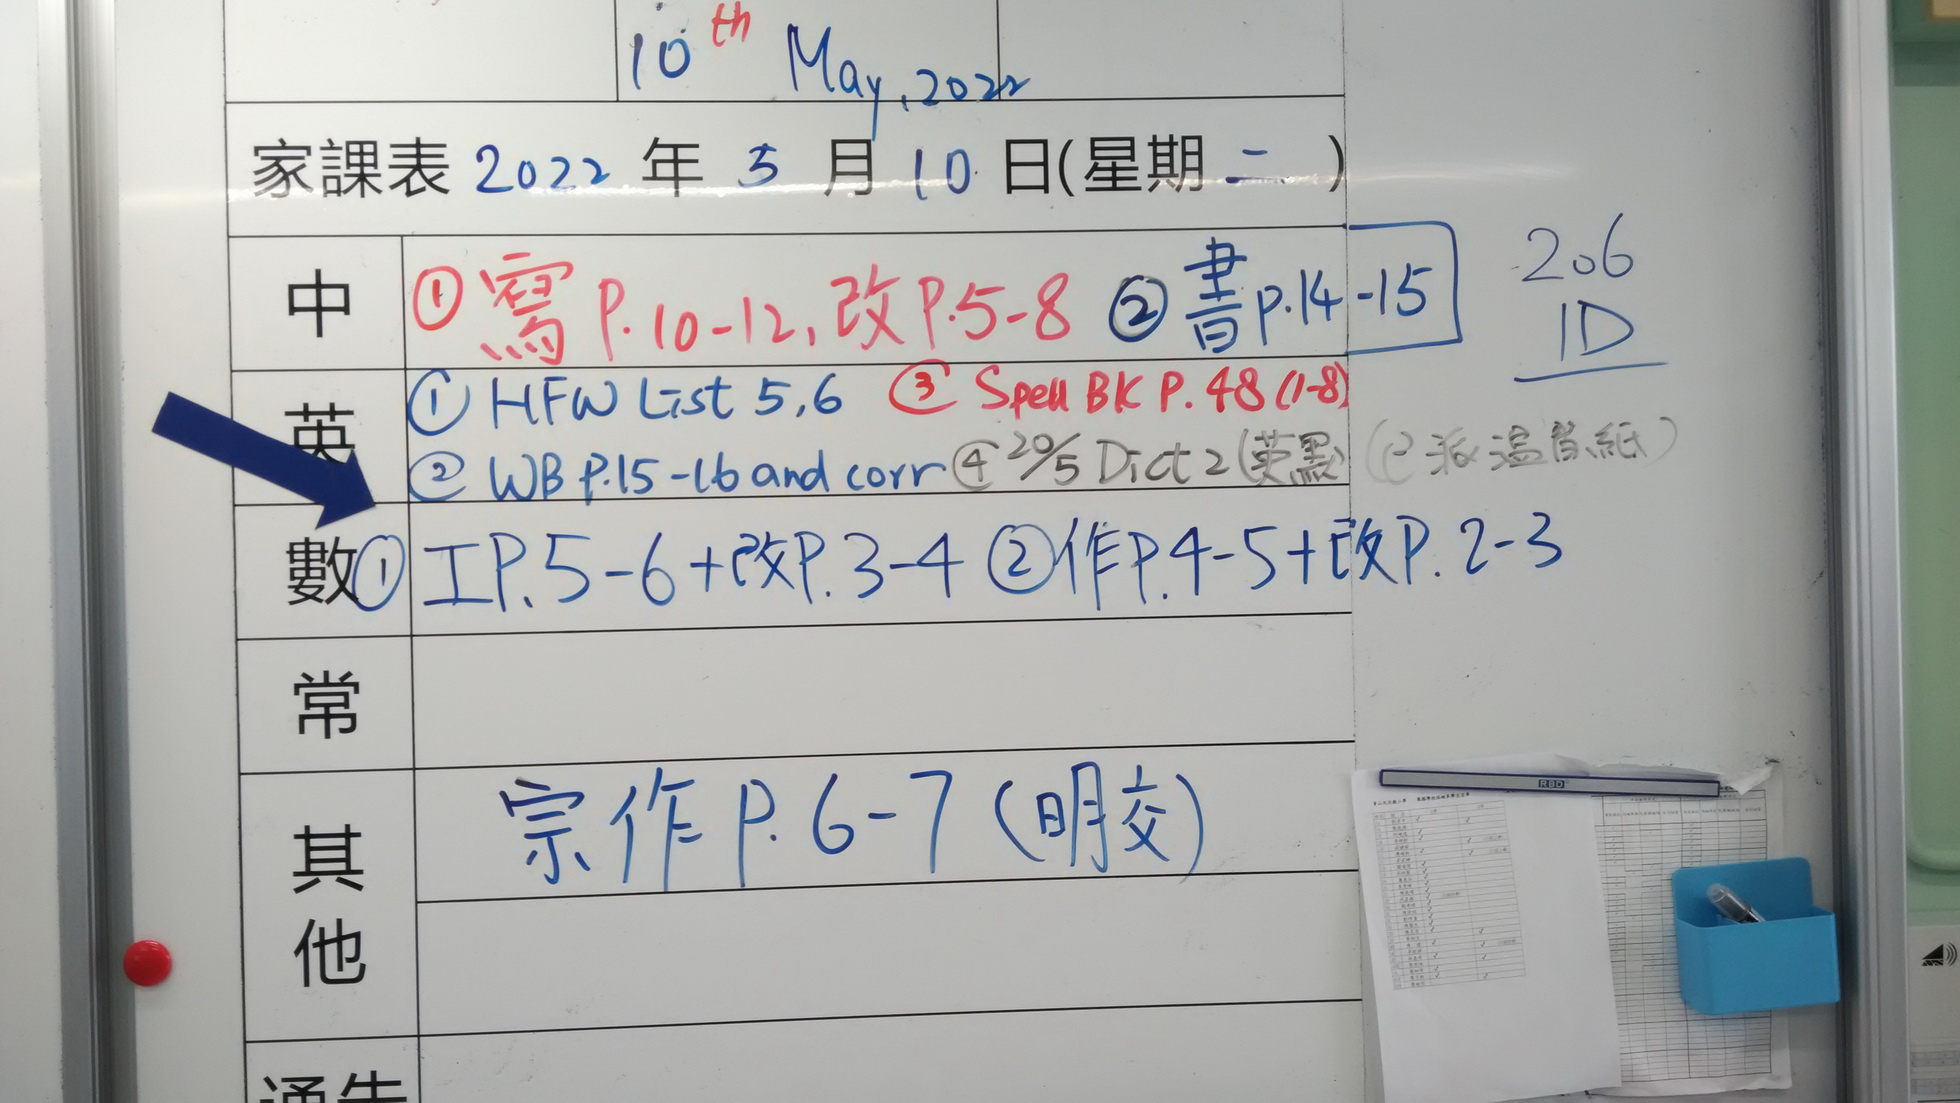 10th May, 2022
家課表 2022 年 5 月 10 日(星期 二 )
中 ① 寫 P.10-12, 改 P.5-8 ② 書 p.14-15
206
1D
英 ① HFW List 5,6 ③ Spell BK P.48 (1-8)
② WB P.15-16 and corr ④ 20/5 Dict 2 (英默) (已派溫習紙)
數 ① 工P.5-6+改P.3-4 ② 作P.4-5+改P.2-3
常
其他 宗作 P.6-7 (明交)
通告